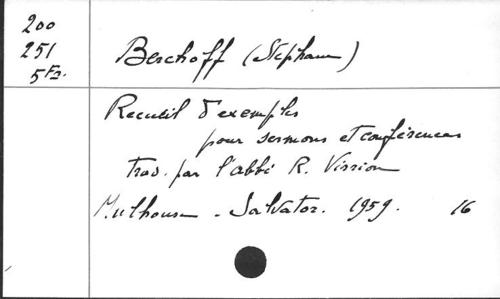 200
251
5 Fr.
Berchoff (Stephan)
Recueil d'exemples
pour sermons et conférences
trad. par l'abbé R. Virrion
Mulhouse - Salvator. 1959. 16